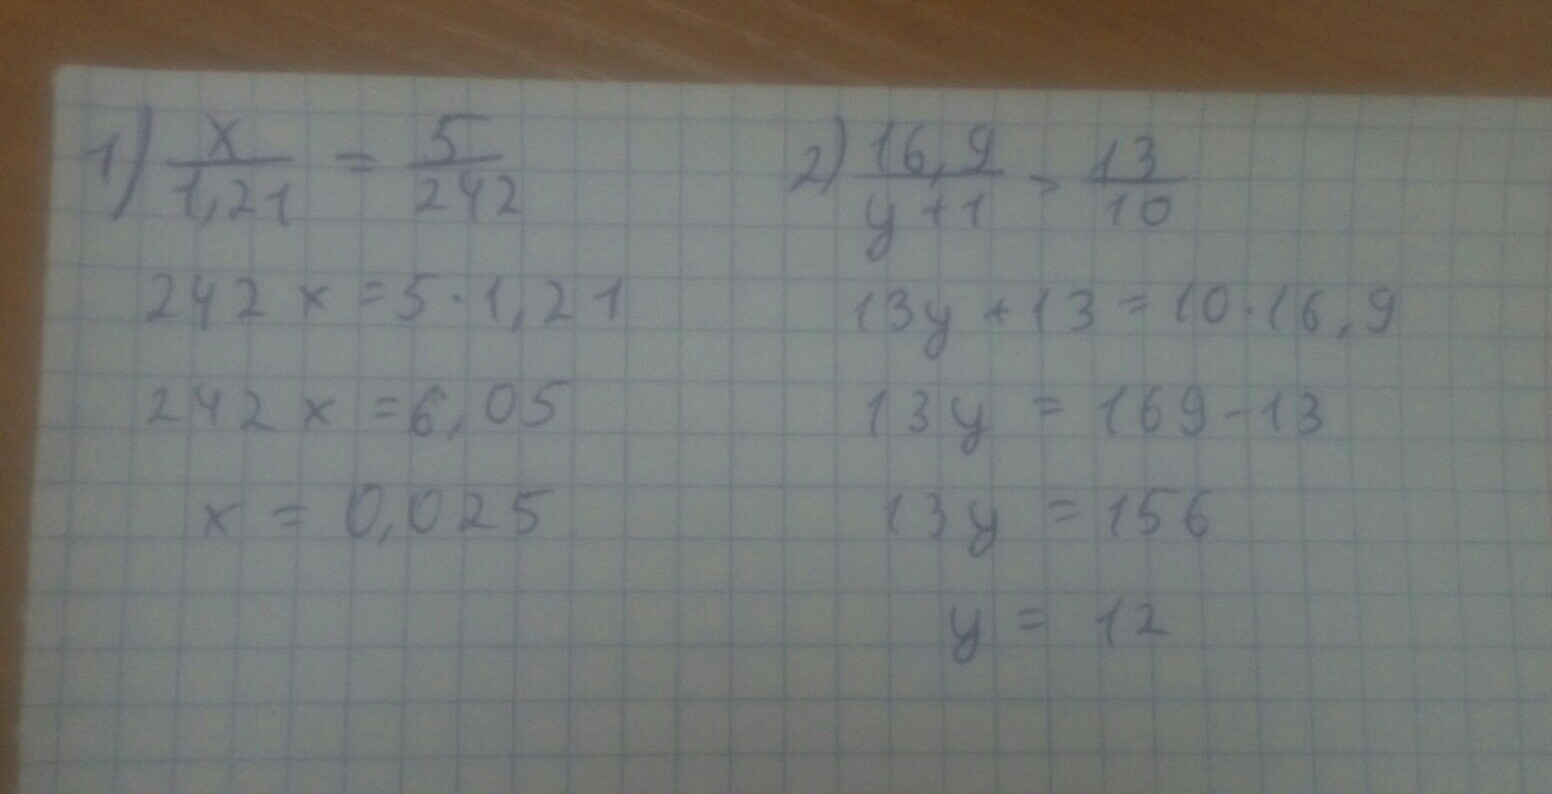 1) x/1,21 = 5/242
242x = 5·1,21
242x = 6,05
x = 0,025
2) 16,9/y+1 = 13/10
13y + 13 = 10·16,9
13y = 169-13
13y = 156
y = 12